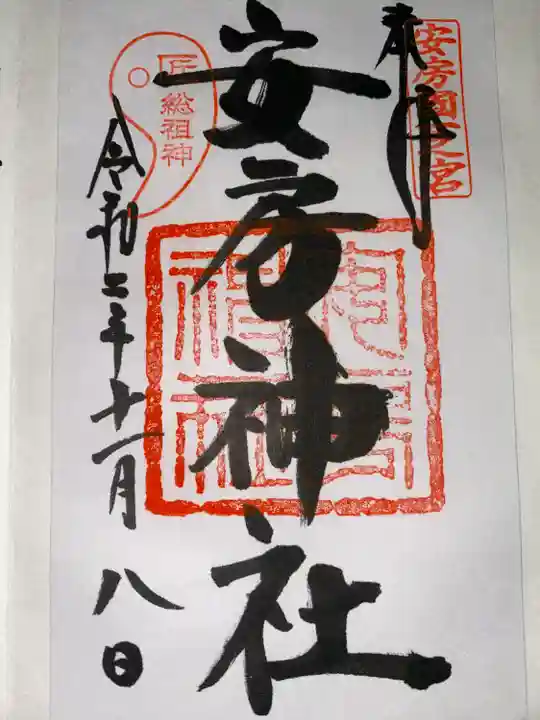 安房國一之宮
奉拝
安房神社
安房神社
匠総祖神
令和二年十一月八日